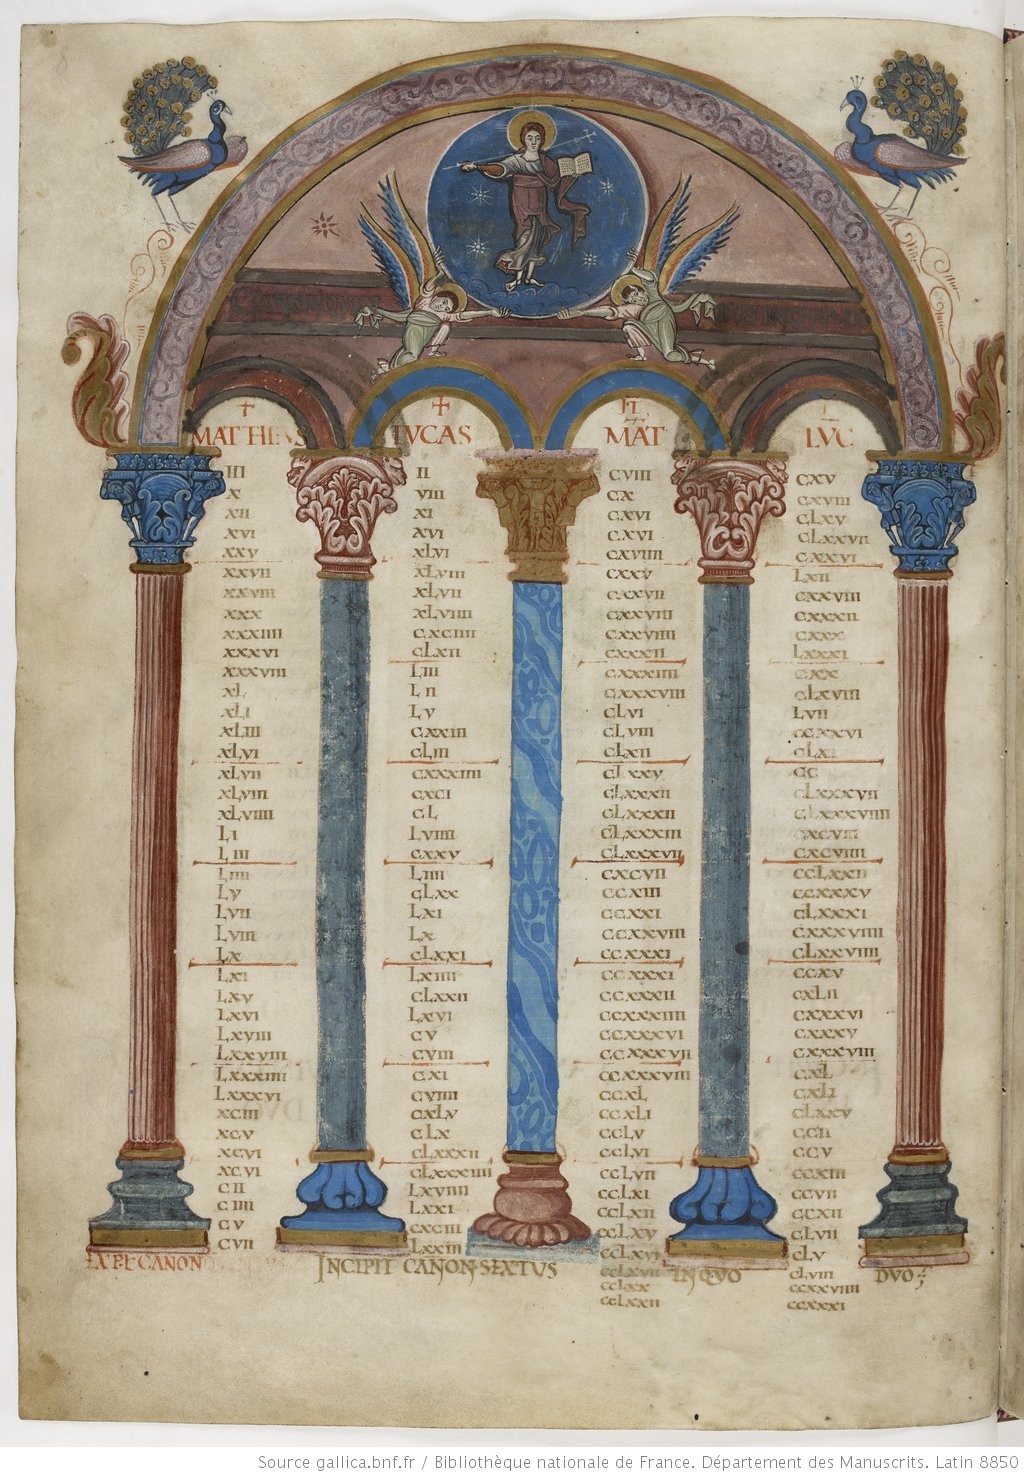 MATHEVS
III
X
XII
XVI
XXV
XXVII
XXVIII
XXX
XXXIIII
XXXVI
XXXVIII
XL
XLI
XLIII
XLVI
XLVII
XLVIII
XLVIIII
LI
LIII
LIIII
LV
LVII
LVIII
LX
LXI
LXV
LXVI
LXVIII
LXXVIII
LXXXIIII
LXXXVI
XCIII
XCV
XCVI
XCVI
CII
CIIII
CV
CVII
LVCAS
II
VIII
XI
XVI
XLVI
XLVIII
XLVII
XLVIIII
CXCIIII
CLXII
LIII
LII
LV
CXXIII
CLIII
CXXXIIII
CXCI
CL
LVIIII
CXXV
LIIII
CLXX
LXI
LX
CLXXI
LXIIII
CLXXII
LXVI
CV
CVIII
CXI
CVIIII
CXLV
CLX
CLXXXII
CLXXXIIII
LXVIIII
LXXI
CXCIII
LXXIII
MAT
CVIII
CX
CXVI
CXVI
CXVIIII
CXXV
CXXVII
CXXVIII
CXXVIIII
CXXXII
CXXXIIII
CXXXVIII
CLVI
CLVIII
CLXII
CLXXV
CLXXXII
CLXXXII
CLXXXIII
CLXXXVII
CXCVII
CCXIII
CCXXI
CCXXVIII
CCXXXI
CCXXXI
CCXXXII
CCXXXIIII
CCXXXVI
CCXXXVII
CCXXXVIII
CCXL
CCXLI
CCLV
CCLVI
CCLVII
CCLXI
CCLXII
CCLXV
CCLXVI
CCLXVII
CCLXX
CCLXXII
LVC
CXV
CXVIII
CLXV
CLXXVII
CXXVI
LXII
CXXVIII
CXXXII
CXXX
LXXXI
CXX
CLXVIII
LVII
CCXXVI
CLXI
CC
CLXXXVII
CLXXXVIIII
CXCVIII
CXCVIIII
CCLXXII
CCXXXV
CLXXXI
CXXXVIIII
CLXXVIIII
CCXV
CXLII
CXXXVI
CXXXV
CXXXVIII
CXL
CXLI
CLXXV
CCII
CCV
CCXIII
CCVII
CCXII
CLVII
CLV
CLVIII
CCXXVIIII
CCXXXI
EXPL CANON
INCIPIT CANON SEXTVS IN QVO DVO
Source gallica.bnf.fr / Bibliothèque nationale de France. Département des Manuscrits. Latin 8850